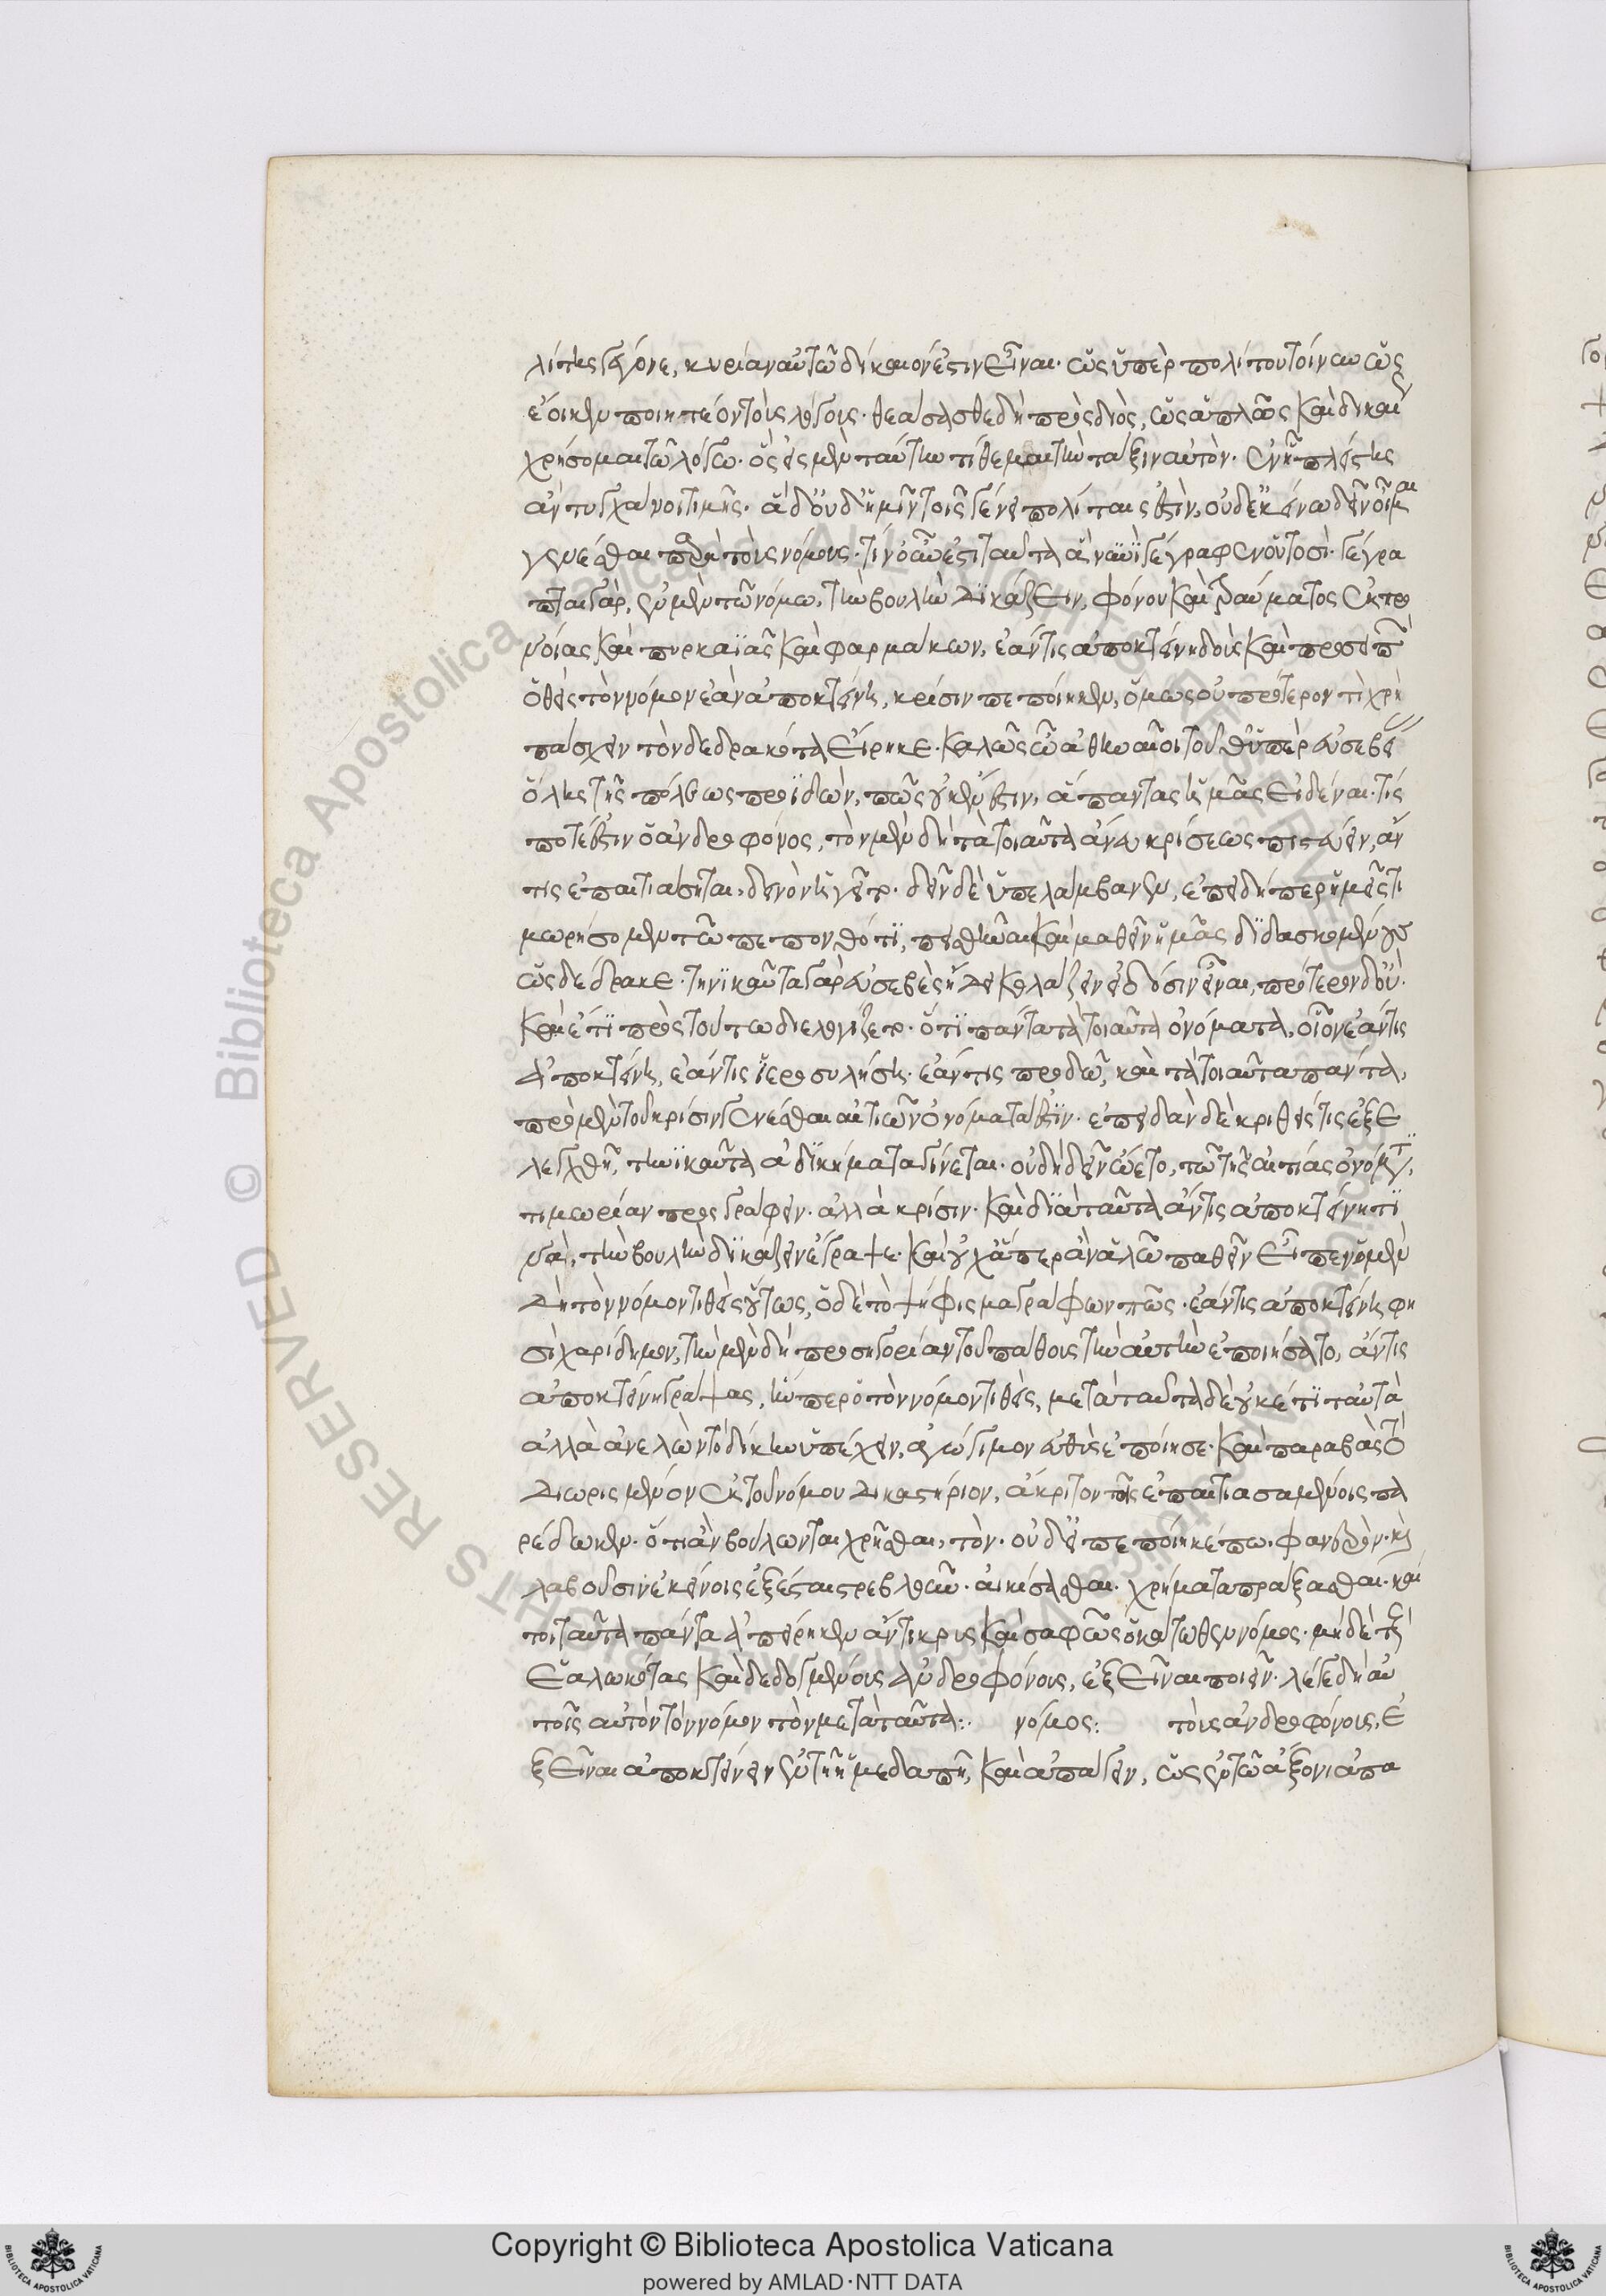 λίτης γέγονε, κυρίαν αὐτῶ δίκαιόν ἐστιν εἶναι· ὡς ὑπὲρ πολίτου τοίνυν ὡς
ἔοικεν ποιητέον τοὺς λόγους· θεάσασθε δὴ πρὸς διὸς, ὡς ἁπλῶς καὶ δικαί
χρήσομαι τῶ λόγω· ὃς εἰς μὲν ταύτην τίθεμαι τὴν τάξιν αὐτὸν· ἐν ἧ πλείστης
ἂν τυγχάνοι τιμῆς· ἃ δ' οὐδ' ἡμῖν τοῖς γένει πολίταις ἐστὶν, οὐδ' ἐκείνω δεῖν οἶμαι
γενέσθαι παρὰ τοὺς νόμους· τίν' οὖν ἐστι ταῦτα ἃ νυνὶ γέγραφεν οὑτοσὶ· γέγρα
πται γὰρ, ἐν μὲν τῶ νόμω, τὴν βουλὴν δικάζειν, φόνου καὶ τραύματος ἐκ προ
νοίας καὶ πυρκαϊᾶς καὶ φαρμάκων, ἐάν τις ἀποκτείνη δοὺς καὶ προσειπ
ὁ θεὶς τὸν νόμον ἐὰν ἀποκτείνη, κρίσιν πεποίηκεν, ὅμως οὐ πρότερον τί χρὴ
πάσχειν τὸν δεδρακότα εἴρηκε· καλῶς ὦ ἄ ἀθηναῖοι τοῦθ' ὑπὲρ εὐσεβεί
ὅλης τῆς πόλεως προϊδὼν, πῶς οὐκ ἔνεστιν, ἅπαντας ἡμᾶς εἰδέναι· τίς
ποτ' ἐστὶν ὁ ἀνδροφόνος, τὸν μὲν δὴ τὰ τοιαῦτα ἄνευ κρίσεως πιστεύειν, ἄν
τις ἐπαιτιάσηται, δεινὸν ἡγεῖτο· δεῖν δὲ ὑπελάμβανεν, ἐπειδήπερ ἡμεῖς τι
μωρήσομεν τῶ πεπονθότι, πεισθῆναι καὶ μαθεῖν ἡμᾶς διδασκομένους
ὡς δέδρακε· τηνικαῦτα γὰρ εὐσεβὲς ἤδη κολάζειν εἰδόσιν εἶναι, πρότερον δ' οὔ·
καὶ ἔτι πρὸς τούτω διελογίζετο· ὅτι πάντα τὰ τοιαῦτα ὀνόματα, οἷον ἐάν τις
ἀποκτείνη, ἐάν τις ἱεροσυλήση· ἐάν τις προδῶ, καὶ τὰ τοιαῦτα πάντα,
πρὸ μὲν τοῦ κρίσιν γενέσθαι αἰτιῶν ὀνόματά ἐστιν· ἐπειδὰν δὲ κριθείς τις ἐξε
λεγχθῆ, τηνικαῦτα ἀδικήματα γίνεται· οὐ δὴ δεῖν ὤετο, τῶ τῆς αἰτίας ὀνόματι,
τιμωρίαν προσγράφειν· ἀλλὰ κρίσιν· καὶ διὰ ταῦτα ἄν τις ἀποκτείνη τι
νὰ, τὴν βουλὴν δικάζειν ἔγραψε· καὶ οὐχ ἅπερ ἂν ἁλῶ παθεῖν εἶπεν ὁ μὲν
δὴ τὸν νόμον τιθεὶς οὕτως, ὁ δὲ τὸ ψήφισμα γράφων πῶς· ἐάν τις ἀποκτείνη φη
σὶ χαρίδημον, τὴν μὲν δὴ προσηγορίαν τοῦ πάθους τὴν αὐτὴν ἐποιήσατο, ἄν τις
ἀποκτείνη γράψας, ἥνπερ ὁ τὸν νόμον τιθεὶς, μετὰ ταῦτα δὲ οὐκέτι ταυτὰ
ἀλλὰ ἀνελὼν τὸ δίκην ὑπέχειν, ἀγώγιμον εὐθὺς ἐποίησε· καὶ παραβὰς τὸ
διωρισμένον ἐκ τοῦ νόμου δικαστήριον, ἄκριτον τοῖς ἐπαιτιασαμένοις πα
ρέδωκεν· ὅ τι ἂν βούλωνται χρῆσθαι, τὸν· οὐδ' εἰ πεποίηκέ πω· φανερὸν· καὶ
λαβοῦσιν ἐκείνοις ἔξεσται στρεβλοῦν· αἰκίσασθαι· χρήματα πράξασθαι· καί
τοι ταῦτα πάντα ἀπείρηκεν ἄντικρυς καὶ σαφῶς ὁ κάτωθεν νόμος· μηδὲ τοὺς
ἑαλωκότας καὶ δεδογμένους ἀνδροφόνους, ἐξεῖναι ποιεῖν· λέγε δὴ αὐ
τοῖς αὐτὸν τὸν νόμον τὸν μετὰ ταῦτα: νόμος: τοὺς ἀνδροφόνους, ἐ
ξεῖναι ἀποκτείνειν ἐν τῆ ἡμεδαπῆ, καὶ ἀπάγειν, ὡς ἐν τῶ ἄξονι ἀπα
Copyright © Biblioteca Apostolica Vaticana
powered by AMLAD·NTT DATA